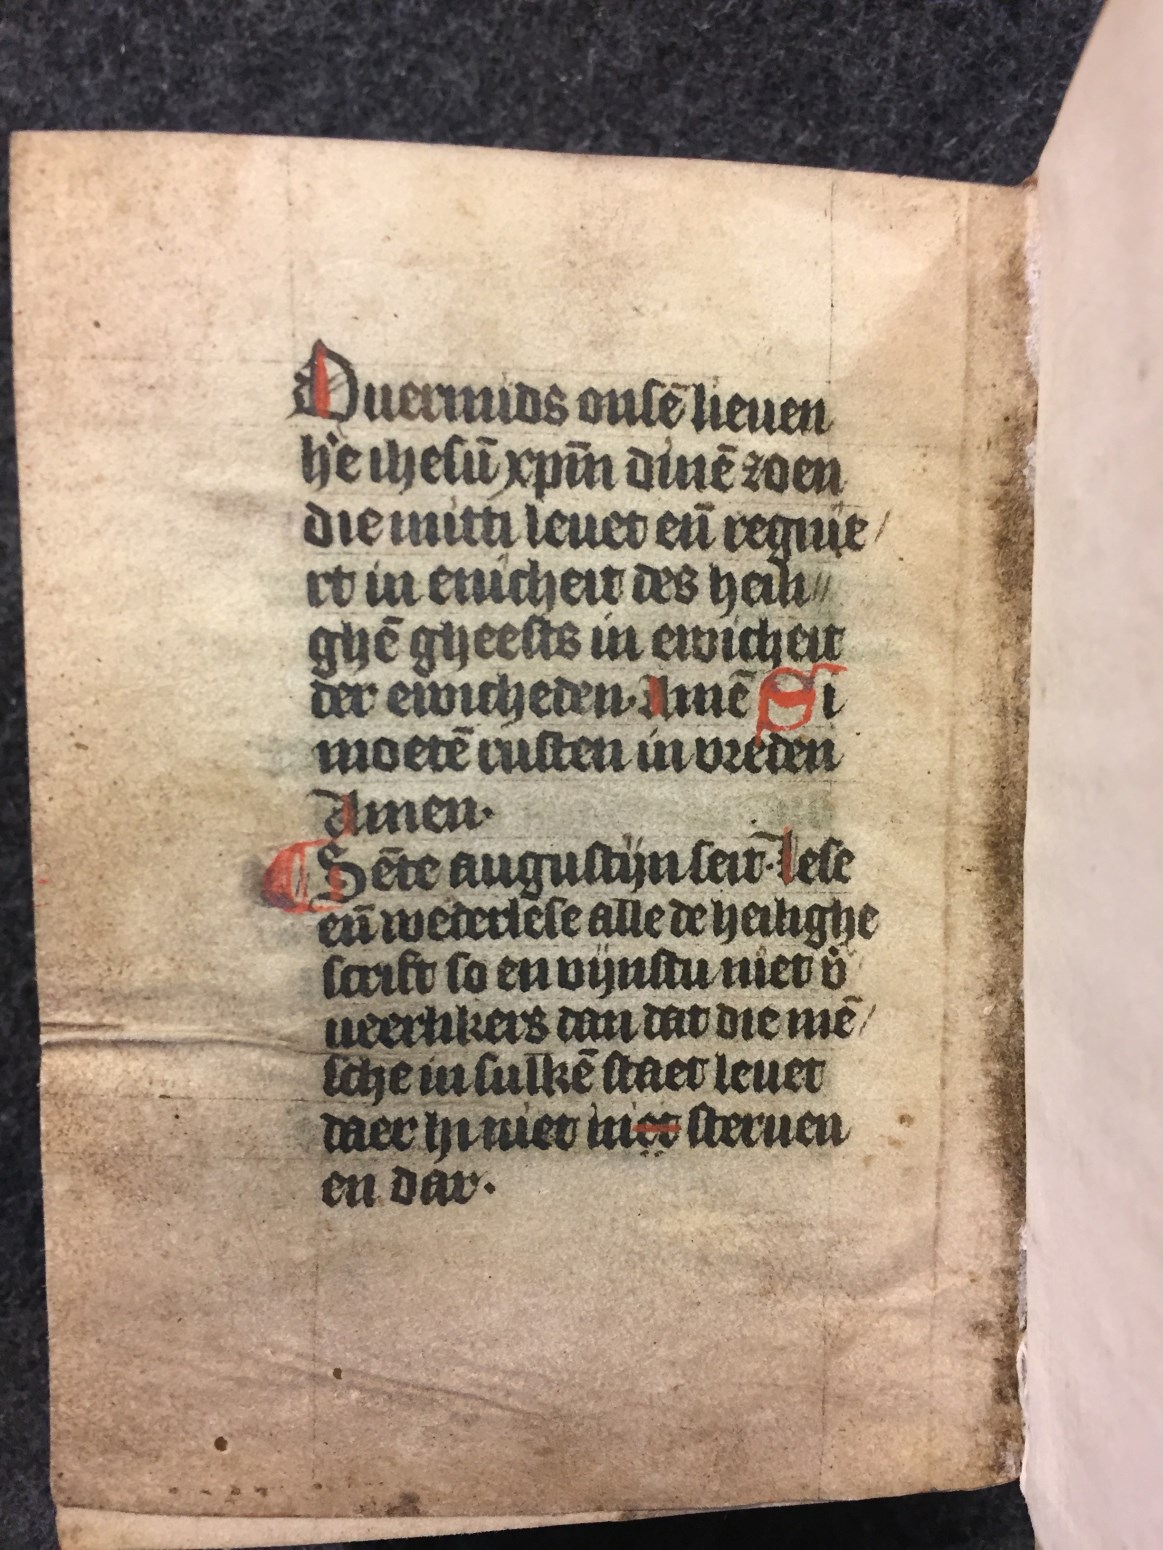 Ouermids onsē lieuen
h'e ihesū xpm̄ dinē zoen
die mitti leuet en̄ regnie/
rt in enicheit des heili//
ghē gheests in ewicheit
der ewicheden· Amē Si
moetē rusten in vreden
Amen·
Sēte augustijn seit· Lese
en̄ wederlese alle de heilighe
scrift so en vijnstu niet v'
ueerlikers dan dat die mē/
sche in sulkē staet leuet
daer hi niet in et steruen
en dar·